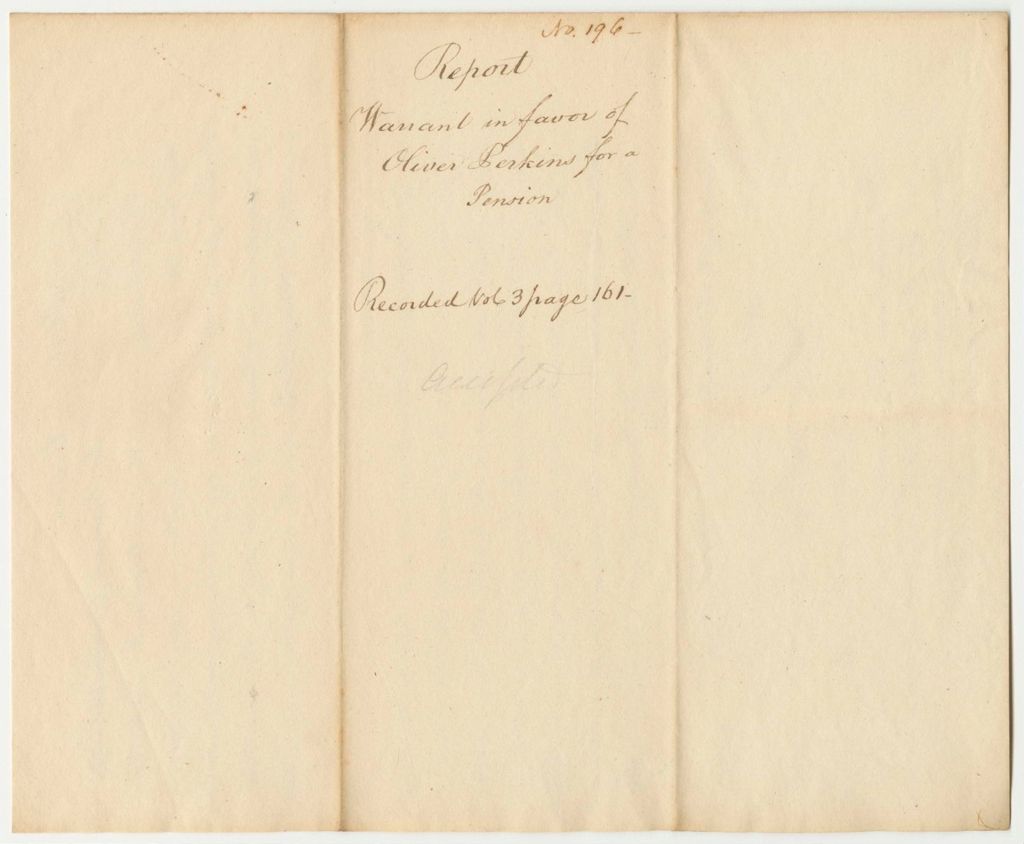 No. 196-
Report
Warrant in favor of
Oliver Perkins for a
Pension
Recorded Vol 3 page 161-
Accepted